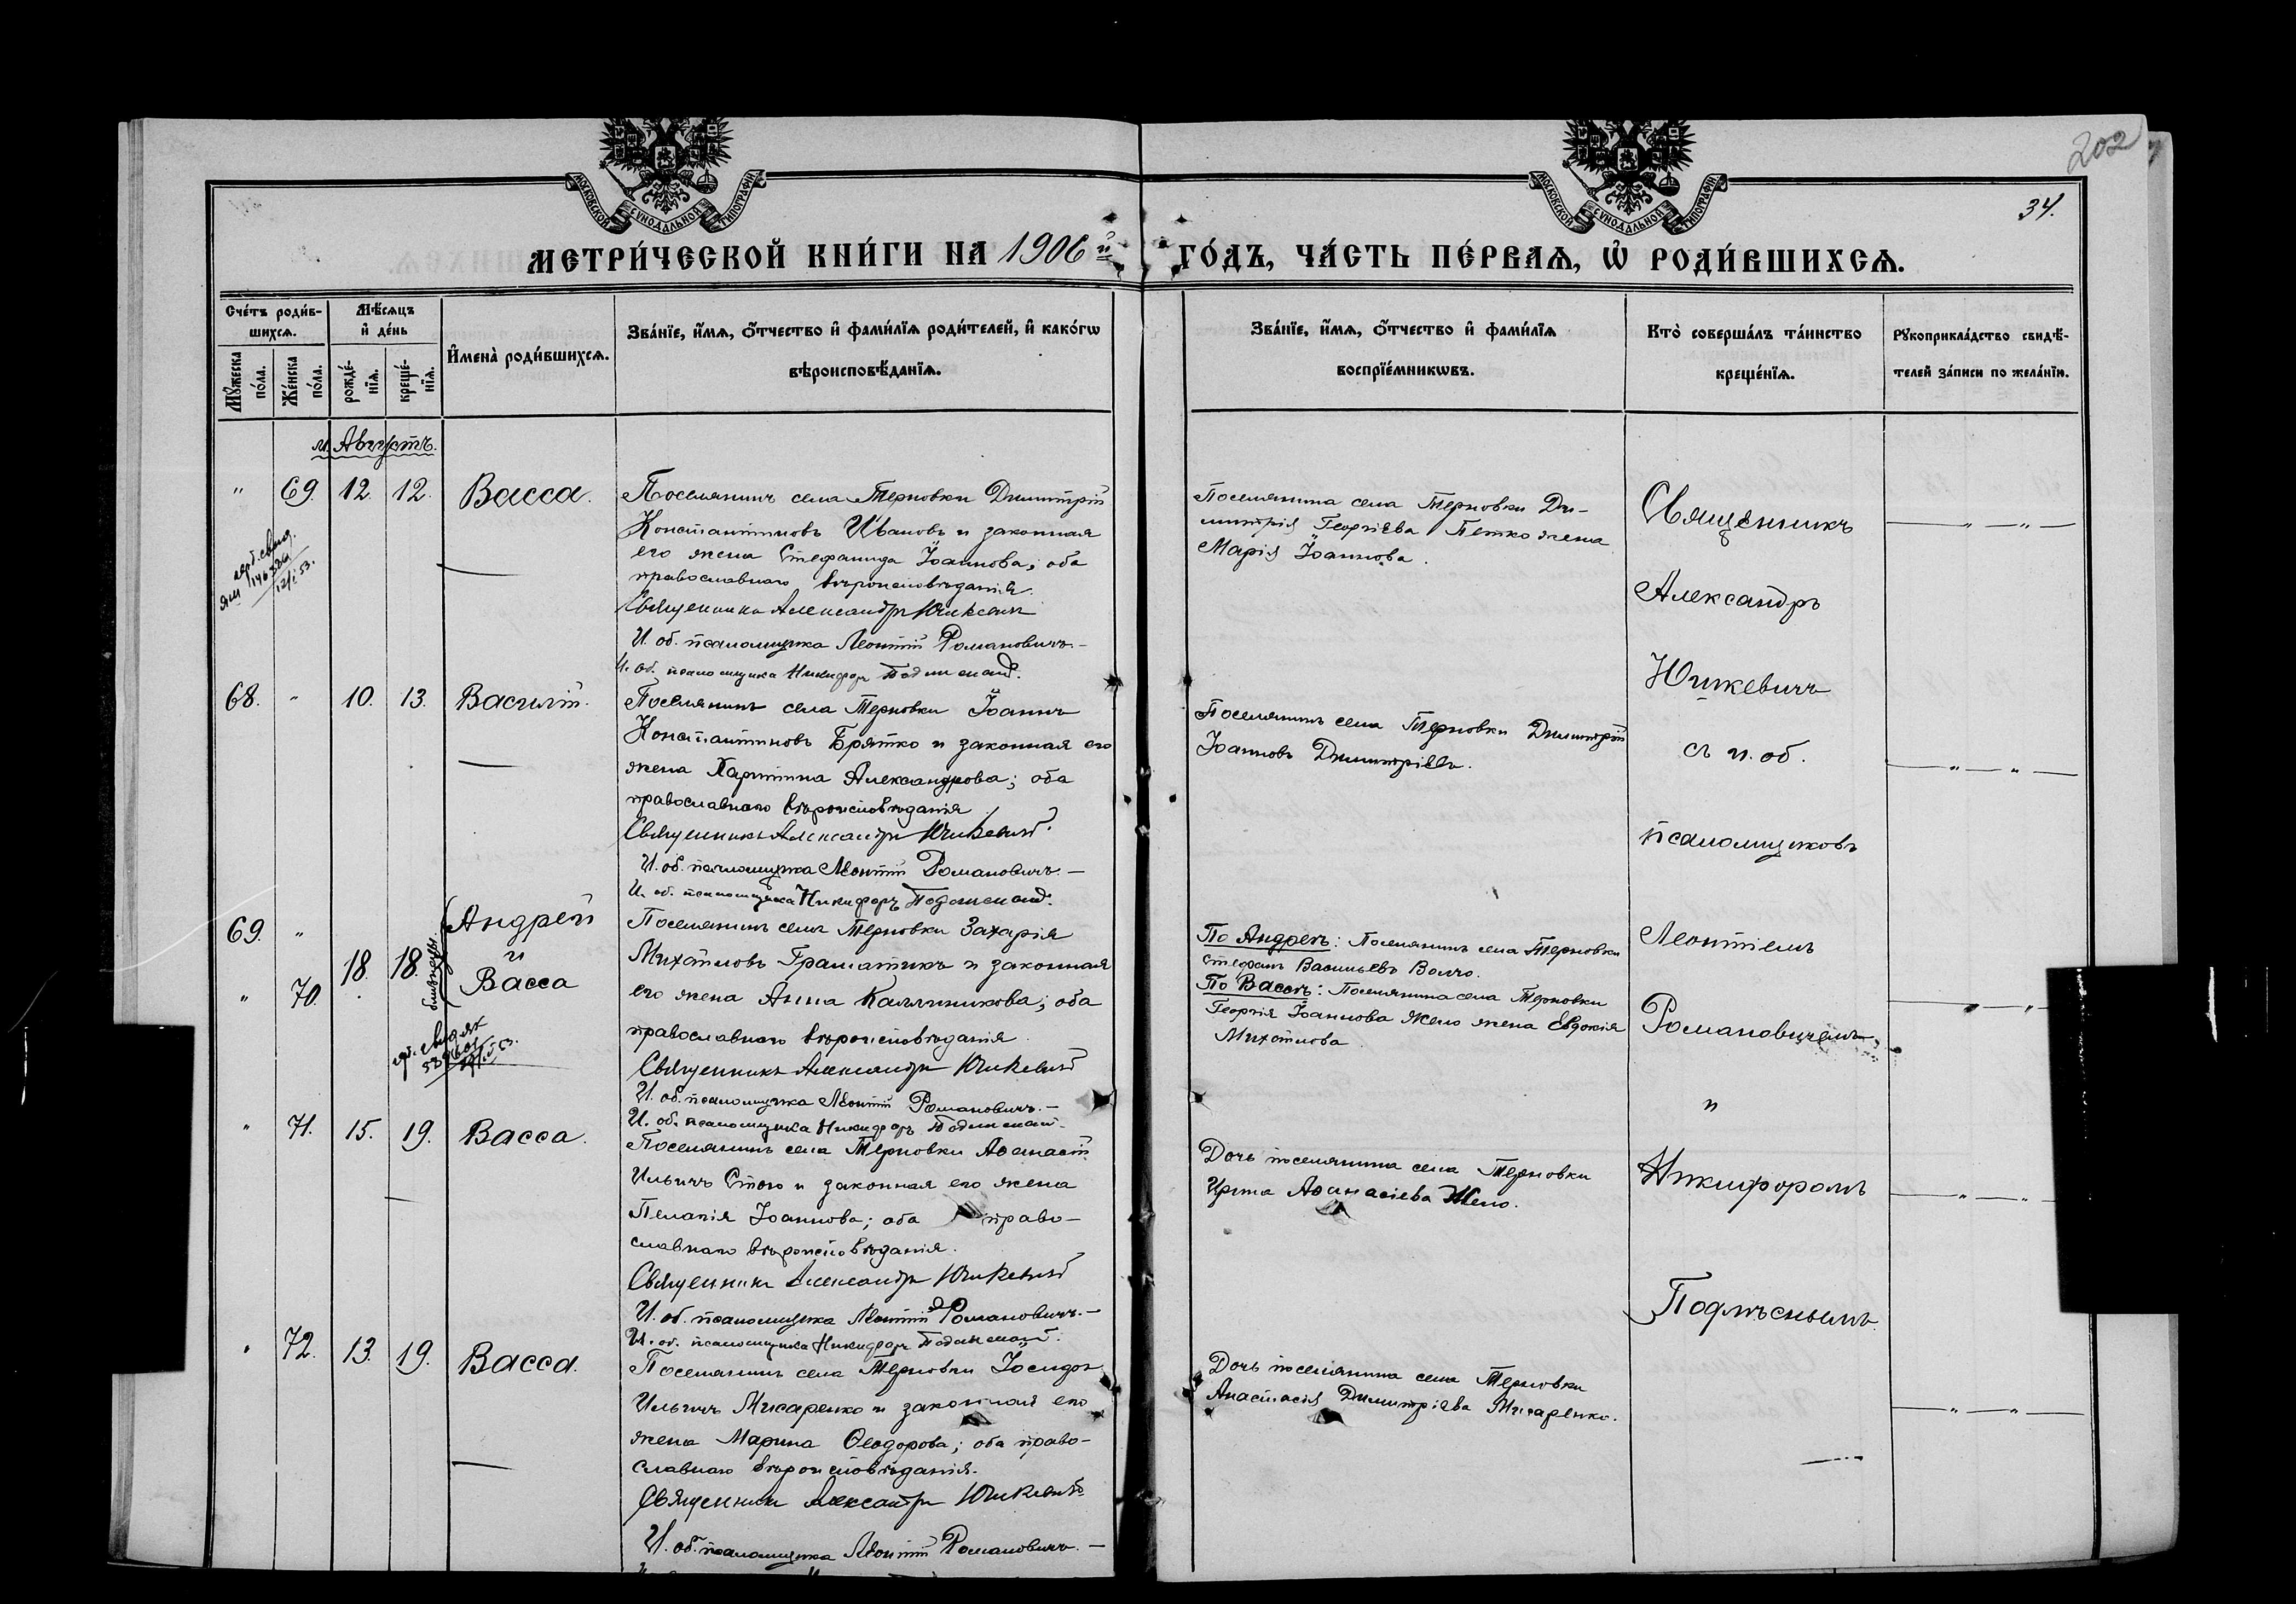 202
34.
МОСКОВСКОЙ СѴНОДАЛЬНОЙ ТИПОГРАФІИ
МОСКОВСКОЙ СѴНОДАЛЬНОЙ ТИПОГРАФІИ
МЕТРИ́ЧЕСКОЙ КНИ́ГИ НА 1906й ГО́ДЪ, ЧА́СТЬ ПЕ́РВАѦ, Ѡ҆ РОДИ́ВШИХСѦ.
Сче́тъ роди́в-
шихсѧ.
Мꙋ́жеска по́ла.
Же́нска по́ла.
Мѣ́сѧцъ
и҆ де́нь
рожде́-
нїѧ.
креще́-
нїѧ.
И҆мена̀ роди́вшихсѧ.
Зва́нїе, и҆́мѧ, ѻ҆́тчество и҆ фами́лїѧ роди́телей, и҆ како́гѡ
вѣроисповѣ́данїѧ.
Зва́нїе, и҆́мѧ, ѻ҆́тчество и҆ фами́лїѧ
воспрїе́мникѡвъ.
Кто̀ соверша́лъ та́инство
креще́нїѧ.
Рꙋкоприкла́дство свидѣ́-
телей за́писи по жела́нїю.
м. Августъ.
" 69. 12. 12. Васса.
Поселянинъ села Терновки Димитрій
Константиновъ Ивановъ и законная
его жена Стефанида Іоаннова; оба
православнаго вѣроисповѣданія.
Священникъ Александръ Юшкевичъ
И. об. псаломщика Леонтій Романовичъ.
И. об. псаломщика Никифоръ Подлѣсный.
Поселянина села Терновки Ди-
митрія Георгіева Петко жена
Марія Іоаннова.
68. " 10. 13. Василій.
Поселянинъ села Терновки Іоаннъ
Константиновъ Брятко и законная его
жена Харитина Александрова; оба
православнаго вѣроисповѣданія
Священникъ Александръ Юшкевичъ
И. об. псаломщика Леонтій Романовичъ.
И. об. псаломщика Никифоръ Подлѣсный.
Поселянинъ села Терновки Димитрій
Іоанновъ Димитріевъ.
69. " 18. 18. близнецы. Андрей
и
" 70. Васса
Поселянинъ села Терновки Захарія
Михайловъ Граматикъ и законная
его жена Анна Каллиникова; оба
православнаго вѣроисповѣданія.
Священникъ Александръ Юшкевичъ
И. об. псаломщика Леонтій Романовичъ.
И. об. псаломщика Никифоръ Подлѣсный.
По Андреѣ: Поселянинъ села Терновки
Стефанъ Васильевъ Волчо.
По Вассѣ: Поселянина села Терновки
Георгія Іоаннова Жело жена Евдокія
Михайлова
" 71. 15. 19. Васса.
Поселянинъ села Терновки Аѳанасій
Ильичъ Стою и законная его жена
Пелагія Іоаннова; оба право-
славнаго вѣроисповѣданія.
Священникъ Александръ Юшкевичъ
И. об. псаломщика Леонтій Романовичъ.
И. об. псаломщика Никифоръ Подлѣсный.
Дочь поселянина села Терновки
Ирина Аѳанасіева Жело.
" 72. 13. 19. Васса.
Поселянинъ села Терновки
Ильичъ Мисаренко и законная его
жена Марина Ѳеодорова; оба право-
славнаго вѣроисповѣданія.
Священникъ Александръ Юшкевичъ
И. об. псаломщика Леонтій Романовичъ.
Дочь поселянина села Терновки
Анастасія Димитріева Мисаренко.
Священникъ
Александръ
Юшкевичъ
съ и. об.
псаломщиковъ
Леонтіемъ
Романовичемъ
и
Никифоромъ
Подлѣснымъ.